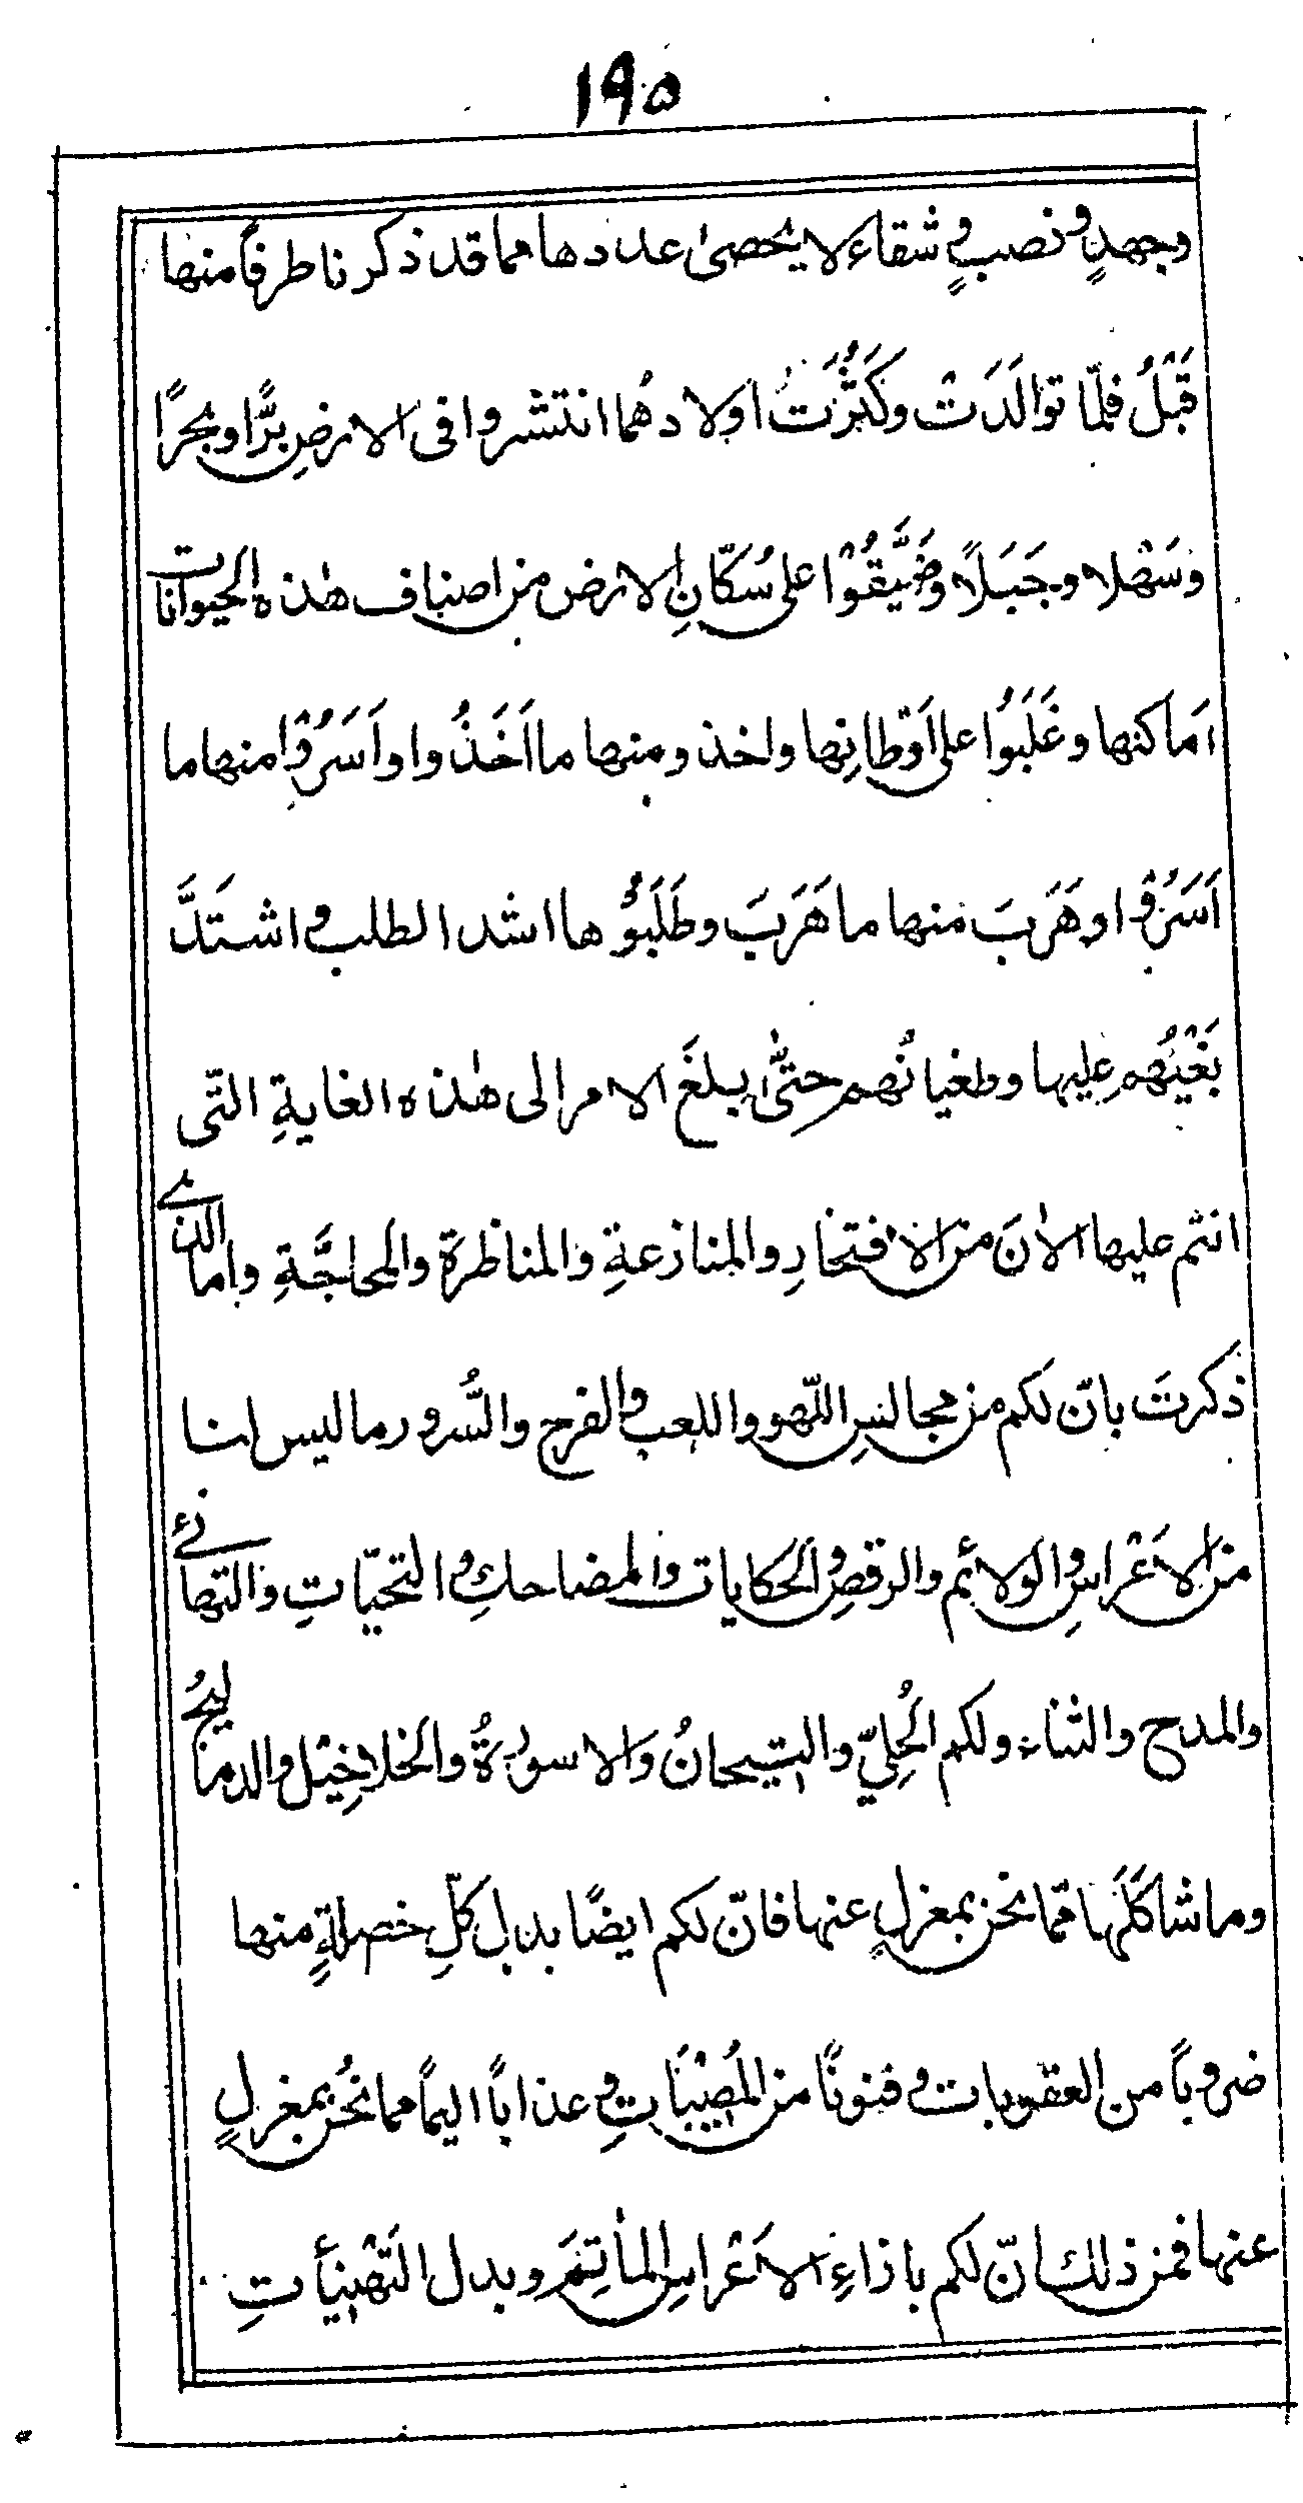 ١٩٥
وجهدٍ ونصبٍ وشقاءٍ لا يحصىٰ عددها مما قد ذكرنا طرفاً منها
قَبْلُ فلمّا توالَدَتْ وكَثُرَتْ اولادهُما انتشروا فى الارضِ برًّا وبحرًا
وسَهْلا وجَبَلًا وضَيَّقُوْا على سُكّانِ الارض من اصناف هٰذه الحيوانات
اماكنها وغَلَبُوا على اَوْطانِها واخذ ومنها ما اَخَذُوا واَسَرُوْا منها ما
اَسَرُوْا وهَرَبَ منها ما هَرَبَ وطَلَبُوْها اشد الطلب واشتَدَّ
بَغْيُهُم عليها وطغيانُهم حتّٰى بلغَ الامر الى هٰذه الغايةِ التّى
انتم عليها الاٰنَ من الافتخارِ والمنازعةِ والمناظرة والمحاجَّةِ واما الذے
ذكرتَ بانّ لكم من مجالسِ اللّهو واللعب والفرح والسُّرور ما ليس لنا
من الاَعْراسِ والولائم والرقصِ والحكايات والمضاحكِ والتحيّاتِ والتهانئے
والمدح والثناء ولكم الحُلِيّ والتيجانُ والاسورةُ والخلاخِيْل والدماليجُ
وما شاكَلَها ممّا نحن بمعزلٍ عنها فانّ لكم ايضًا بدل كلِّ خصلةٍ منها
ضروباً من العقوبات وفنونًا من المُصِيْبَاتِ وعذاباً اليماً مما نحُن بمعزلٍ
عنها فمن ذلك انّ لكم بازاءِ الاَعْراسِ المأتِمَ وبدل التَهْنِيأتِ